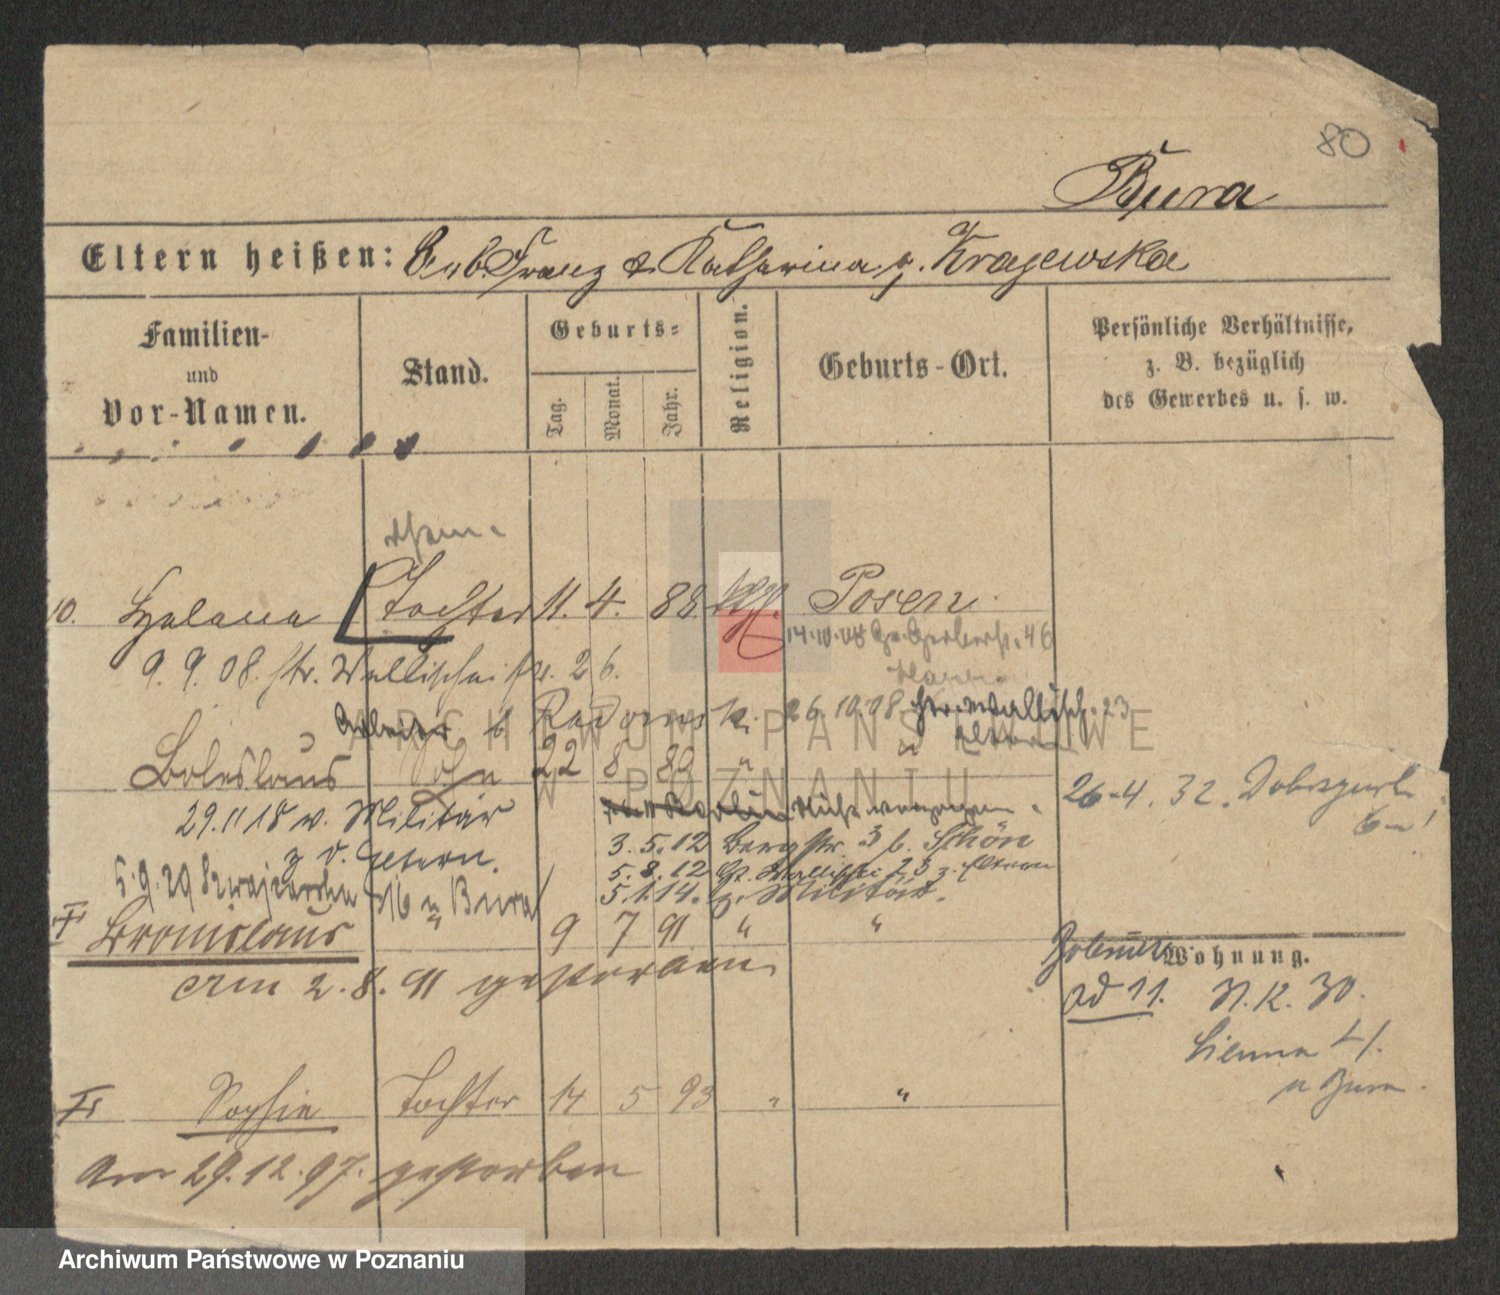 80
Bura
Eltern heißen: Arb. Franz & Katharina g. Krajewska
Familien- und Vor-Namen.
Stand.
Geburts-
Tag.
Monat.
Jahr.
Religion.
Geburts-Ort.
Persönliche Verhältnisse, z. B. bezüglich des Gewerbes u. s. w.
10. Helena Tochter 11. 4. 88 Posen
14.10.08 Gr. Gerberstr. 46
9. 9. 08. str. Wallischei 26.
b Radomski 26 10 08 Wallisch. 23
Eltern
Boleslaus Sohn 22 8 89 " "
26.4.32.
29.11 18 v. Militär
z d. Eltern.
3.5.12 Bergstr. 3 b. Schön
5.8.12 Gr. Wallischei 23 z. Eltern
5.1.14. z. Militär.
5.9.29 Szwajcarska Bura
Bronislaus " 9 7 91 " "
am 2.8.91 gestorben
Wohnung.
ad 11.
Sophie Tochter 14 5 93 " "
am 29.12.97. gestorben
ARCHIWUM PAŃSTWOWE
W POZNANIU
Archiwum Państwowe w Poznaniu